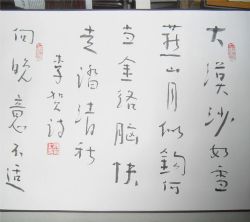 大漠沙如雪
燕山月似鈎何
当金络脑快
走踏清秋
李贺诗
向晚意不适